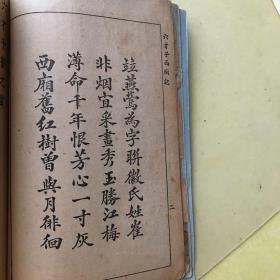 竝燕鶯為字聯徽氏姓崔
非烟宜采畫秀玉勝江梅
薄命千年恨芳心一寸灰
西廂舊紅樹曾與月徘徊
六才子西廂記
二